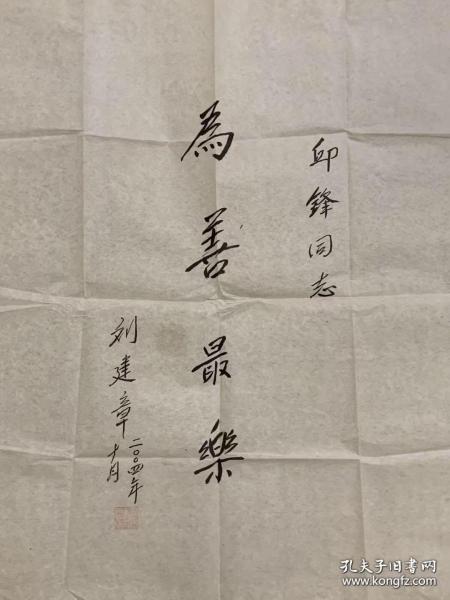 邱鋒同志
為善最樂
刘建章
二〇〇四年
十月
孔夫子旧书网
www.kongfz.com